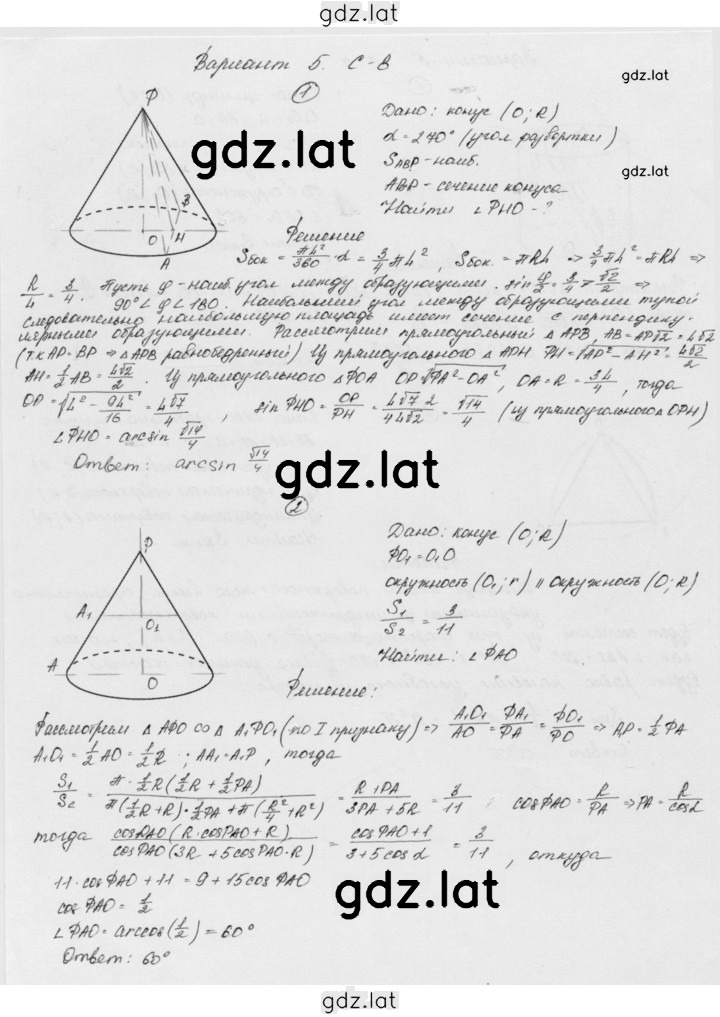 gdz.lat
Вариант 5. С-В
gdz.lat
1
Дано: конус (O; R)
α = 270° (угол развортки)
S_ABP - наиб.
ABP - сечение конуса
Найти ∠PHO - ?
gdz.lat
gdz.lat
P
B
O
H
A
Решение
Sбок = πL²/360 · α = 3/4 πL², Sбок. = πRL ⇒ 3/4 πL² = πRL ⇒
R/L = 3/4. Пусть φ - наиб. угол между образующими. sin φ/2 = 3/4 > √2/2 ⇒
90° < φ < 180. Наибольший угол между образующими тупой
следовательно наибольшую площадь имеет сечение с перпендику-
лярными образующими. Рассмотрим прямоугольный △APB, AB = AP√2 = L√2
(т.к AP = BP ⇒ △APB равнобедренный) Из прямоугольного △APH PH = √AP² - AH² = L√2/2
AH = 1/2 AB = L√2/2. Из прямоугольного △POA OP = √PA² - OA², OA = R = 3L/4, тогда
OP = √L² - 9L²/16 = L√7/4, sin PHO = OP/PH = L√7 2/4L√2 = √14/4 (из прямоугольного △OPH)
∠PHO = arcsin √14/4
Ответ: arcsin √14/4
gdz.lat
2
P
A₁
O₁
A
O
Дано: конус (O; R)
PO₁ = O₁O
окружность (O₁; r) || окружность (O; R)
S₁/S₂ = 3/11
Найти: ∠PAO
gdz.lat
Решение:
Рассмотрим △APO ∽ △A₁PO₁ (по I признаку) ⇒ A₁O₁/AO = PA₁/PA = PO₁/PO ⇒ AP = 1/2 PA
A₁O₁ = 1/2 AO = 1/2 R ; AA₁ = A₁P, тогда
S₁/S₂ = π · 1/2 R (1/2 R + 1/2 PA)/π(1/2 R + R) · 1/2 PA + π(R²/4 + R²) = R + PA/3PA + 5R = 3/11 ; cos PAO = R/PA ⇒ PA = R/cos α
тогда cos PAO (R · cos PAO + R)/cos PAO (3R + 5cos PAO · R) = cos PAO + 1/3 + 5cos α = 3/11, откуда
11 · cos PAO + 11 = 9 + 15 cos PAO
cos PAO = 1/2
∠PAO = arccos(1/2) = 60°
Ответ: 60°
gdz.lat
gdz.lat